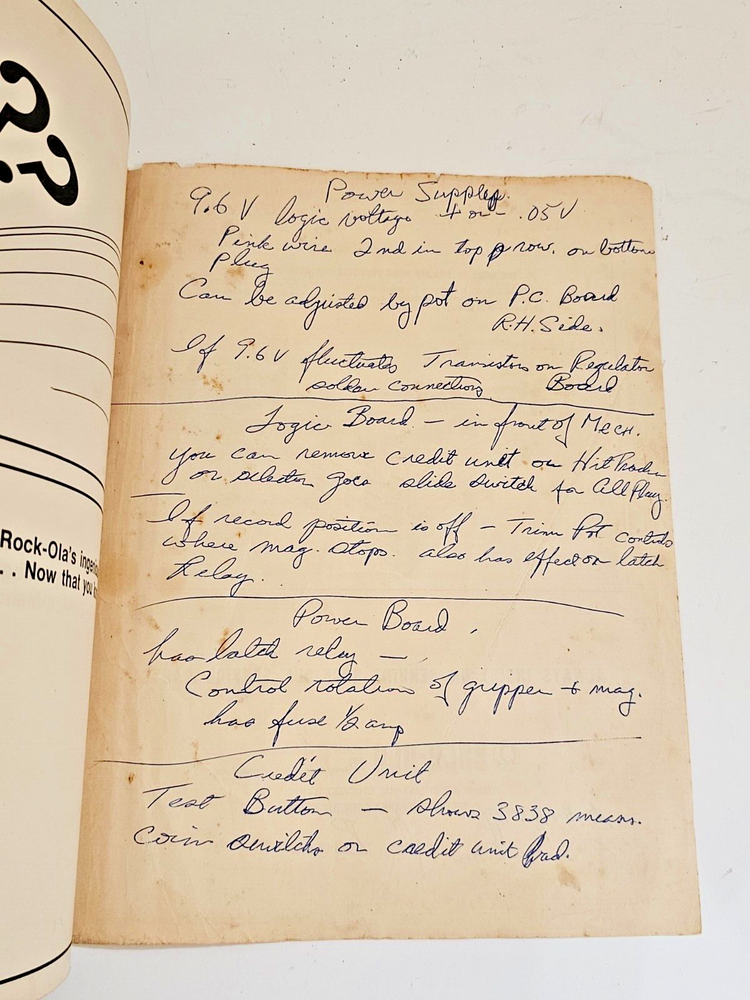 ??
Rock-Ola's
. . Now that you
Power Supply.
9.6 V logic voltage + or - .05V
Pink wire 2nd in top row. on bottom
Plug
Can be adjusted by pot on P.C. Board
R.H. Side.
If 9.6V fluctuates Transistors on Regulator
solder connections Board
Logic Board - in front of Mech.
you can remove credit unit on
or selector goes slide switch for All Play.
If record position is off - Trim Pot controls
where mag. stops. also has effect on latch
Relay.
Power Board
has latch relay —
Control rotation of gripper + mag.
has fuse 1/2 amp
Credit Unit
Test Button — shows 3838 means.
coin switchs or credit unit bad.